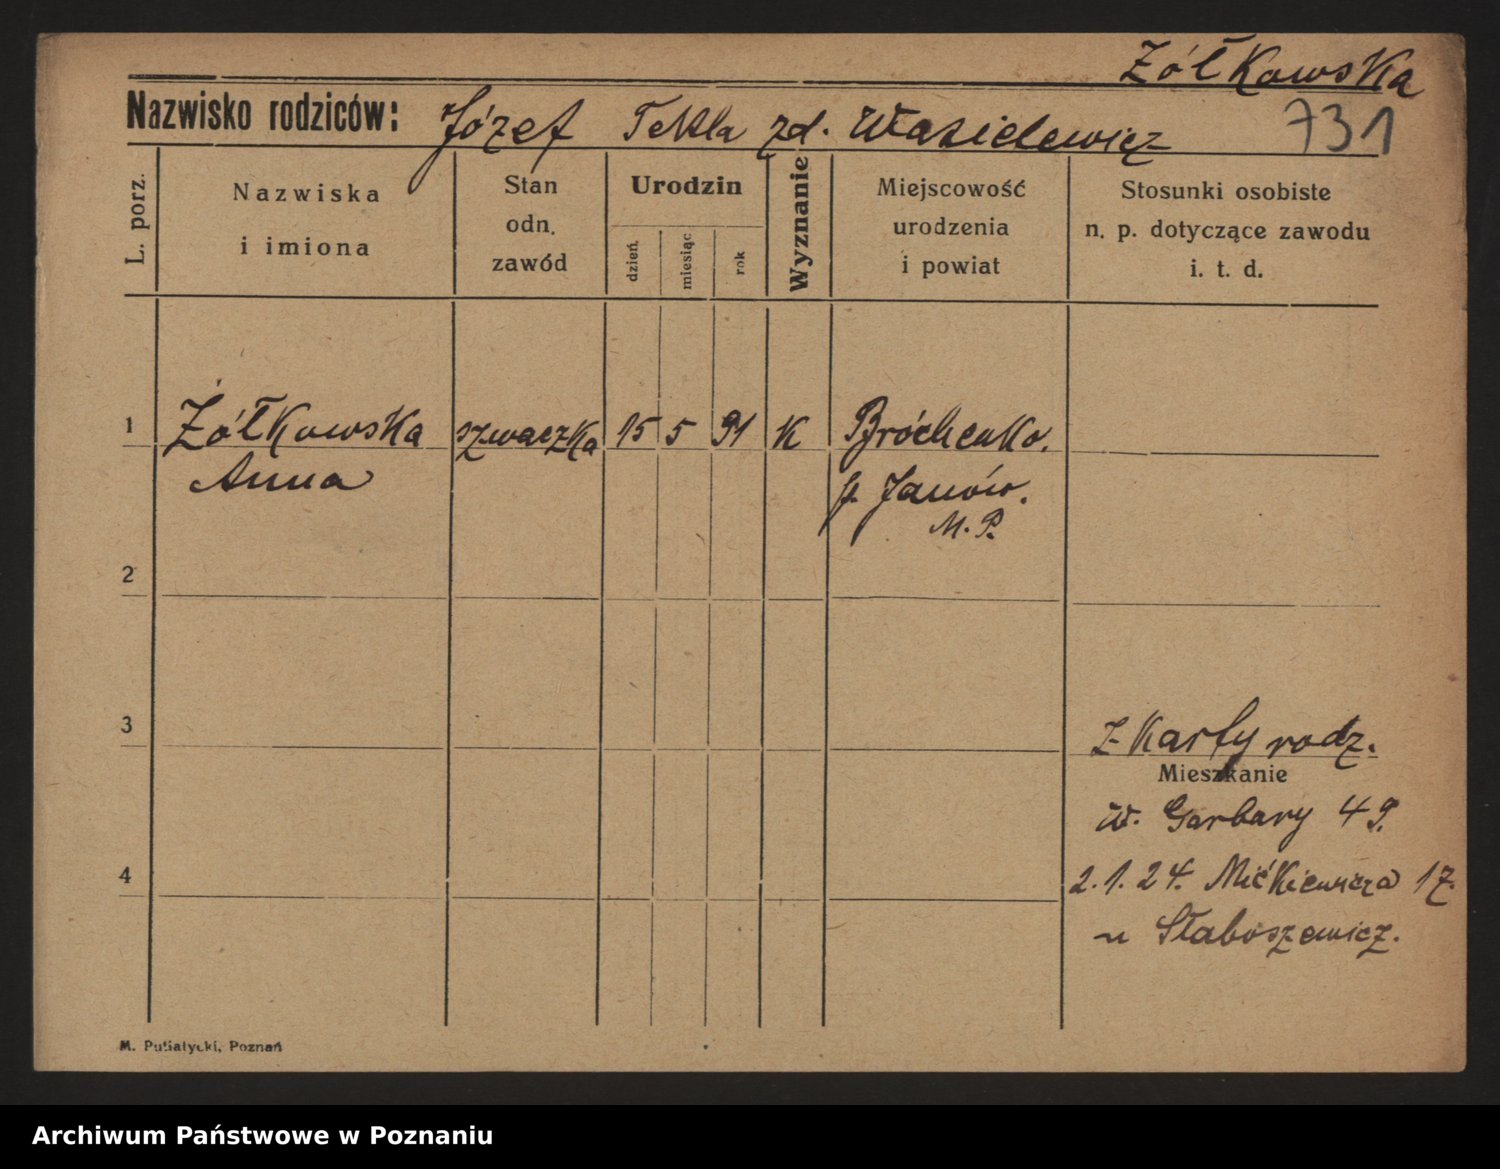 Żółkowska
Nazwisko rodziców: Józef Tekla zd. Wasielewicz
731
L. porz.
Nazwiska i imiona
Stan odn. zawód
Urodzin
dzień, miesiąc rok
Wyznanie
Miejscowość urodzenia i powiat
Stosunki osobiste n. p. dotyczące zawodu i. t. d.
1 Żółkowska szwaczka 15 5 91 K
Anna
p. Janów.
M. P.
2
3
z Karty rodz.
Mieszkanie
W. Garbary 49.
4
2.1.24. Mićkiewicza 17.
u Słaboszewicz.
M. Putiatycki, Poznań
Archiwum Państwowe w Poznaniu